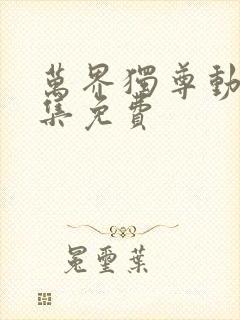 萬界獨尊動
集免費
冕璽葉